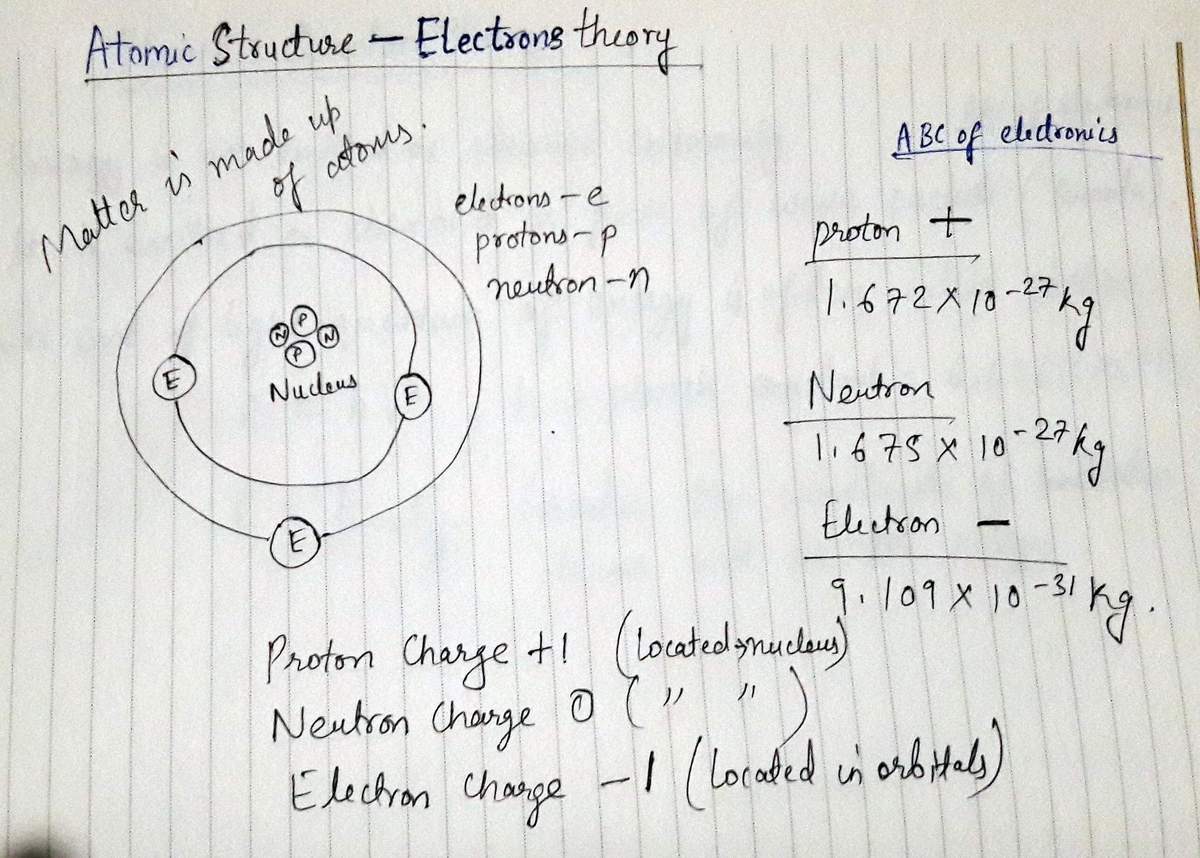 Atomic Structure – Electrons theory
Matter is made up
of atoms.
ABC of electronics
electrons – e
protons – p
neutron – n
N P N
P
Nucleus
E
E
E
proton +
1.672 × 10⁻²⁷ kg
Neutron
1.675 × 10⁻²⁷ kg
Electron –
9.109 × 10⁻³¹ kg.
Proton Charge +1 (located → nucleus)
Neutron Charge 0 ( " " )
Electron Charge –1 (located in orbitals)